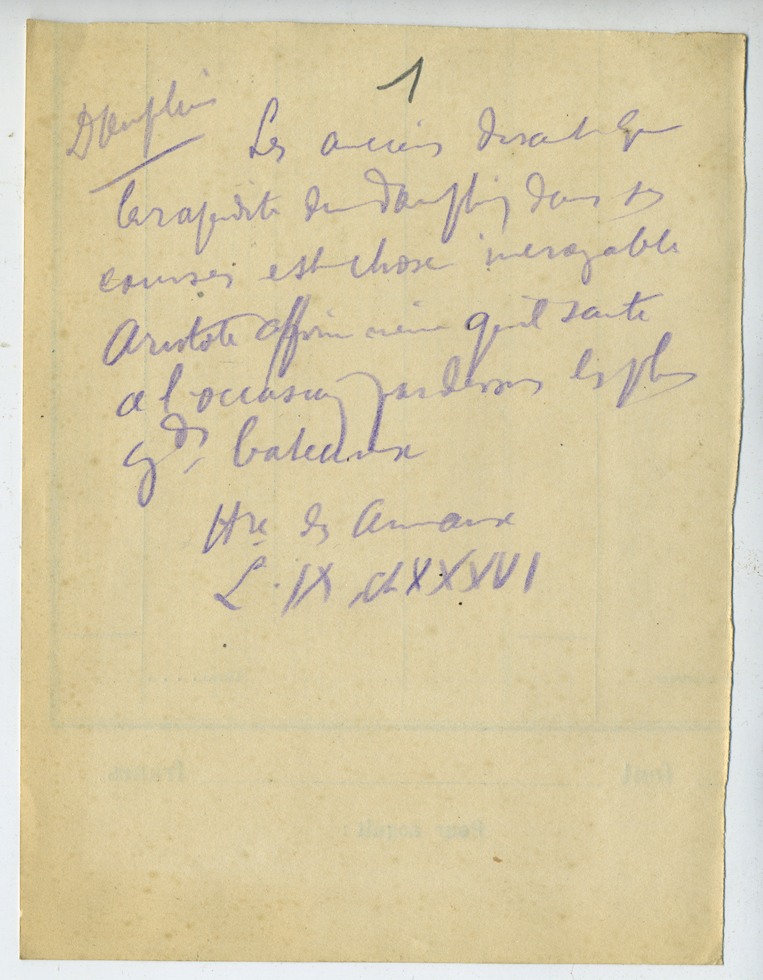 1
Dauphin
Les anciens disent que
la rapidité du Dauphin dans ses
courses est chose incroyable
Aristote affirme même qu'il saute
à l'occasion par dessus les plus
gds bateaux
Hre des Animaux
L. IX ch XXXVI